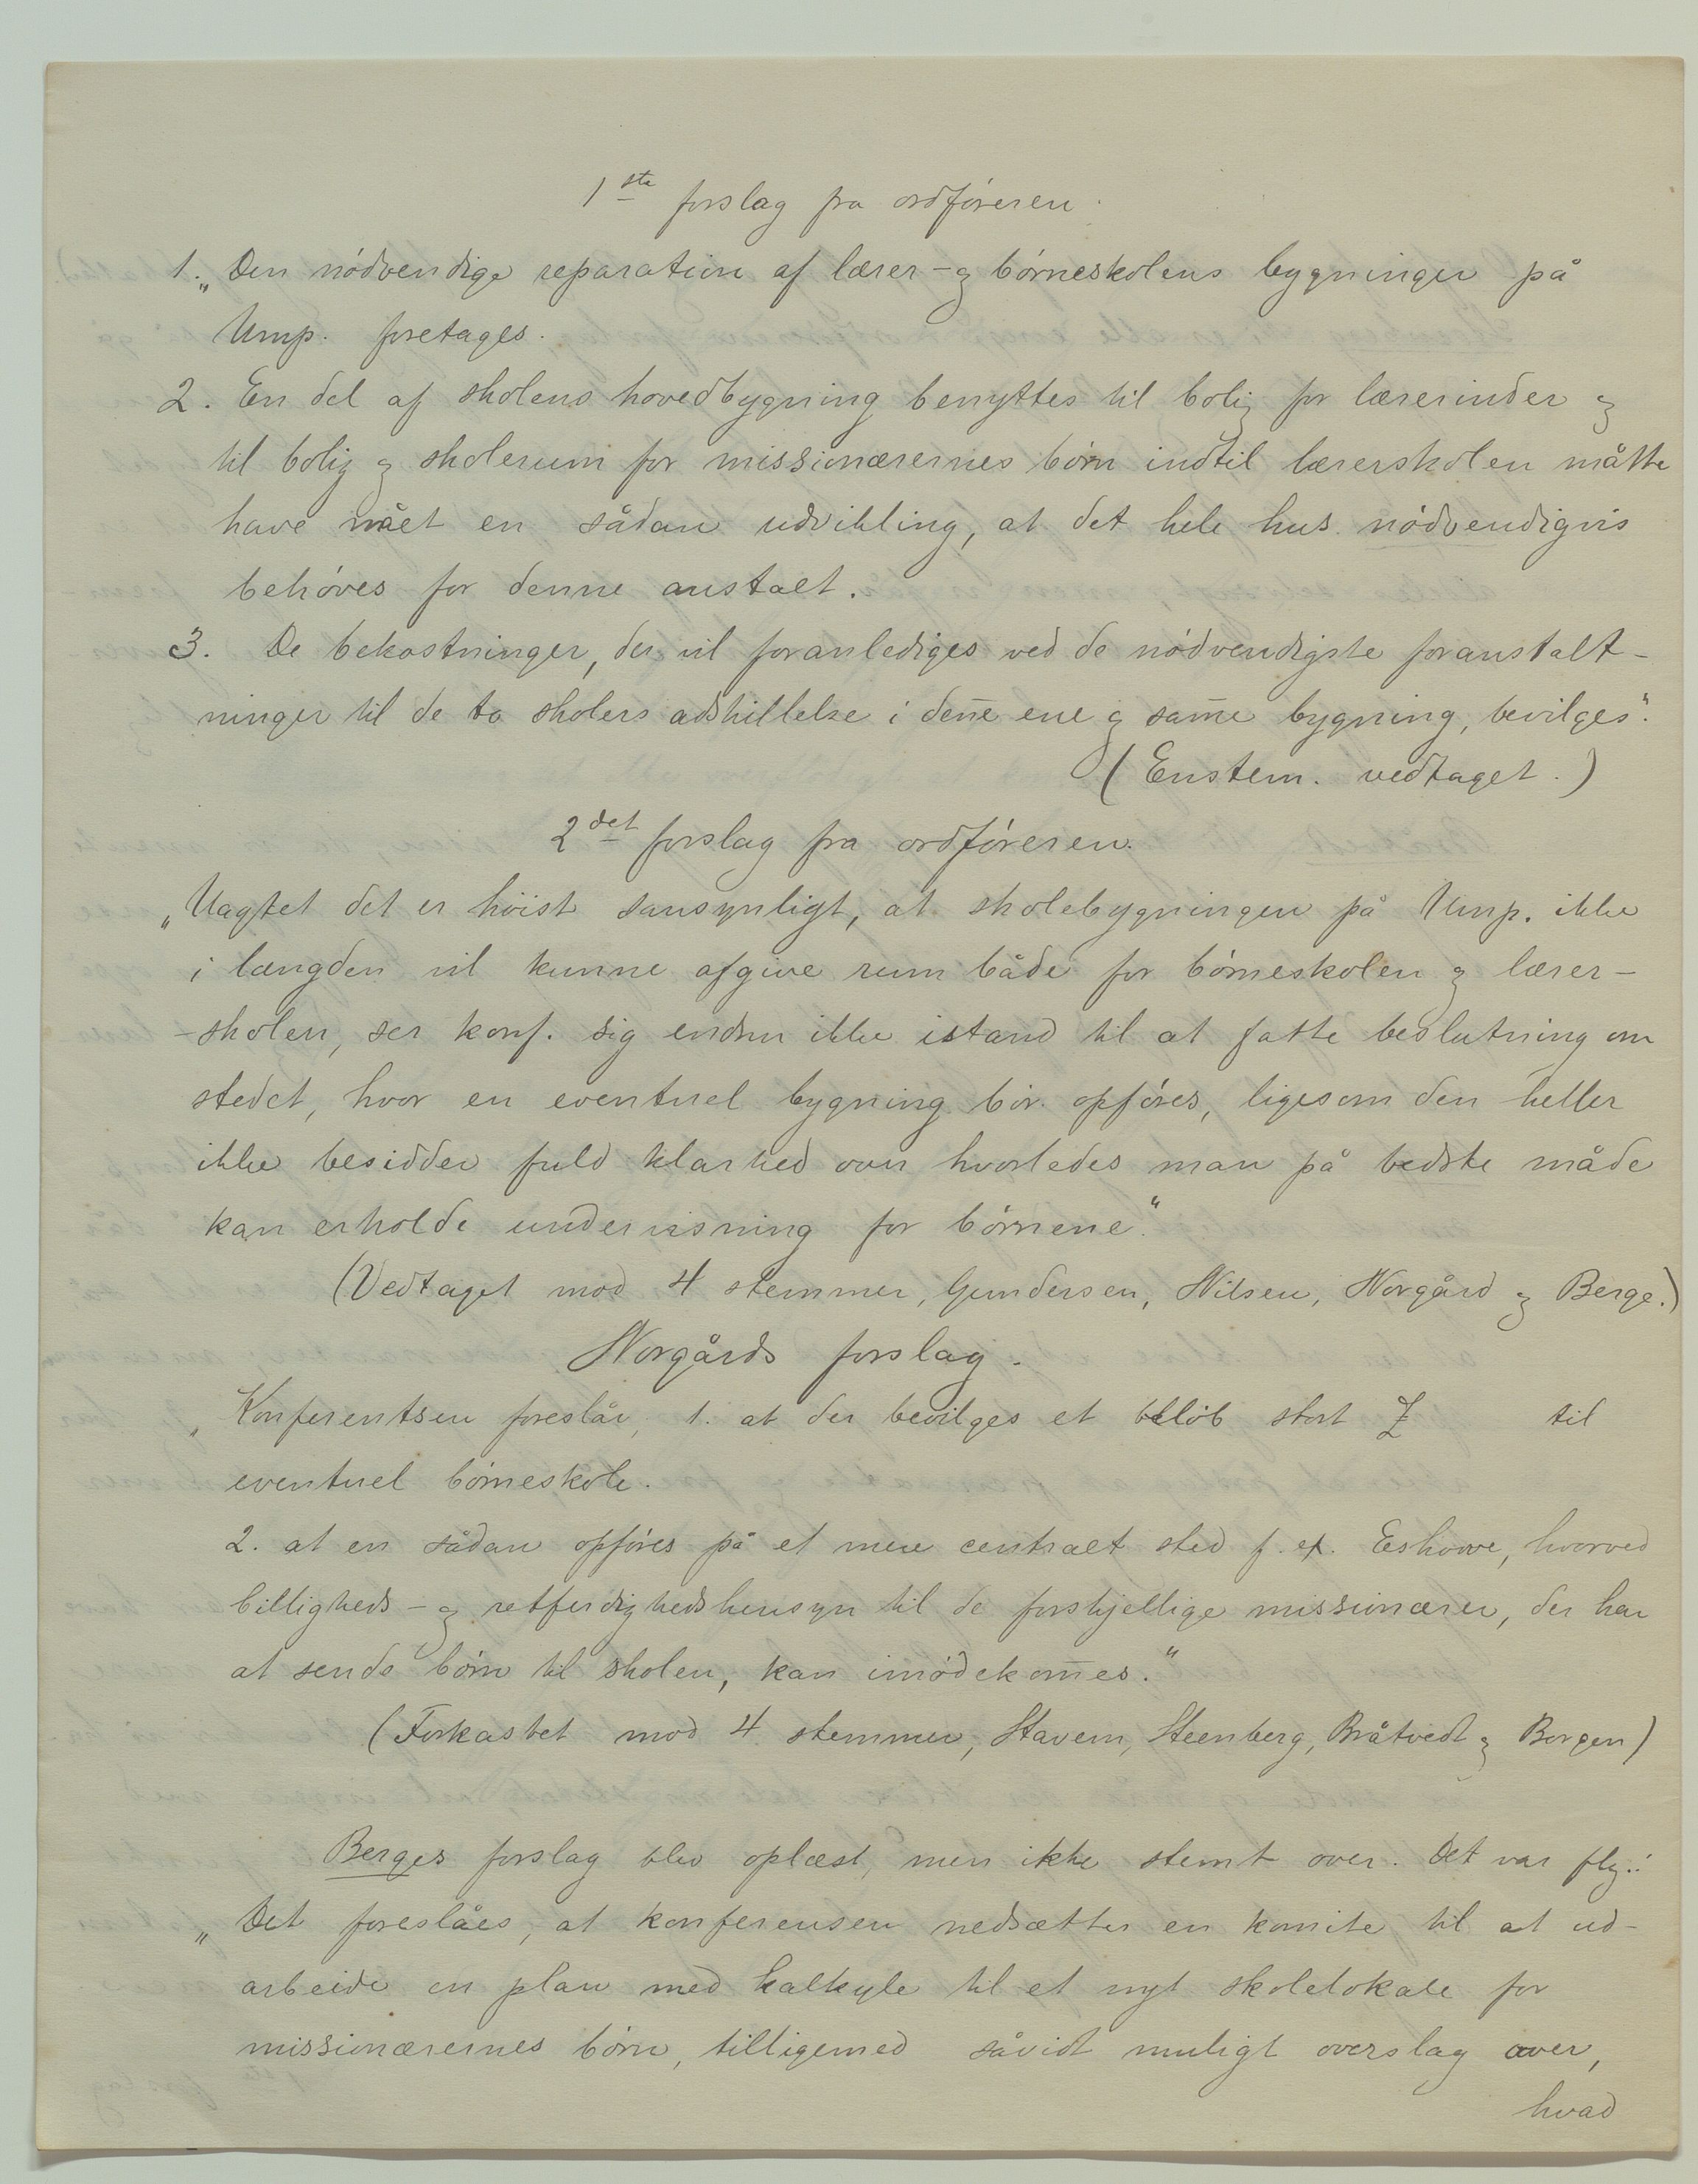 1ste forslag fra ordføreren.
1. „Den nódvendige reparation af lærer- og bórneskolens bygninger på
Ump. foretages.
2. En del af skolens hovedbygning benyttes til bolig for lærerinder og
til bolig og skolerum for missionærernes bórn indtil lærerskolen måtte
have nået en sådan udvikling, at det hele hus nódvendigvis
behóves for denne anstalt.
3. De bekostninger, der vil foranlediges ved de nódvendigste foranstalt-
ninger til de to skolers adskillelse i den̄e ene og sam̄e bygning, bevilges“.
(Enstem. vedtaget.)
2det forslag fra ordfóreren.
„Uagtet det er hóist sansynligt, at skolebygningen på Ump. ikke
i længden vil kunne afgive rum både for bórneskolen og lærer-
-skolen, ser konf. sig endnu ikke istand til at fatte beslutning om
stedet, hvor en eventuel bygning bór opfóres, ligesom den heller
ikke besidder fuld klarhed over hvorledes man på bedste måde
kan erholde undervisning for bórnene“.
(Vedtaget mod 4 stemmer, Gundersen, Nilsen, Norgård og Berge.)
Norgårds forslag.
„Konferentsen foreslår, 1. at der bevilges et belób stort £ til
eventuel bórneskole.
2. at en sådan opfóres på et mere centralt sted f. ex. Eshowe, hvorved
billigheds- og retferdighedshensyn til de forskjellige missionærer, der har
at sende bórn til skolen, kan imódekom̄es.“
(Forkastet mod 4 stemmer, Stavem, Steenberg, Bråtvedt og Borgen)
Berges forslag blev oplæst, men ikke stemt over. Det var flg.:
„Det foreslåes, at konferensen nedsætter en komite til at ud-
arbeide en plan med kalkyle til et nyt skolelokale for
missionærernes bórn, tilligemed såvidt muligt overslag over,
hvad